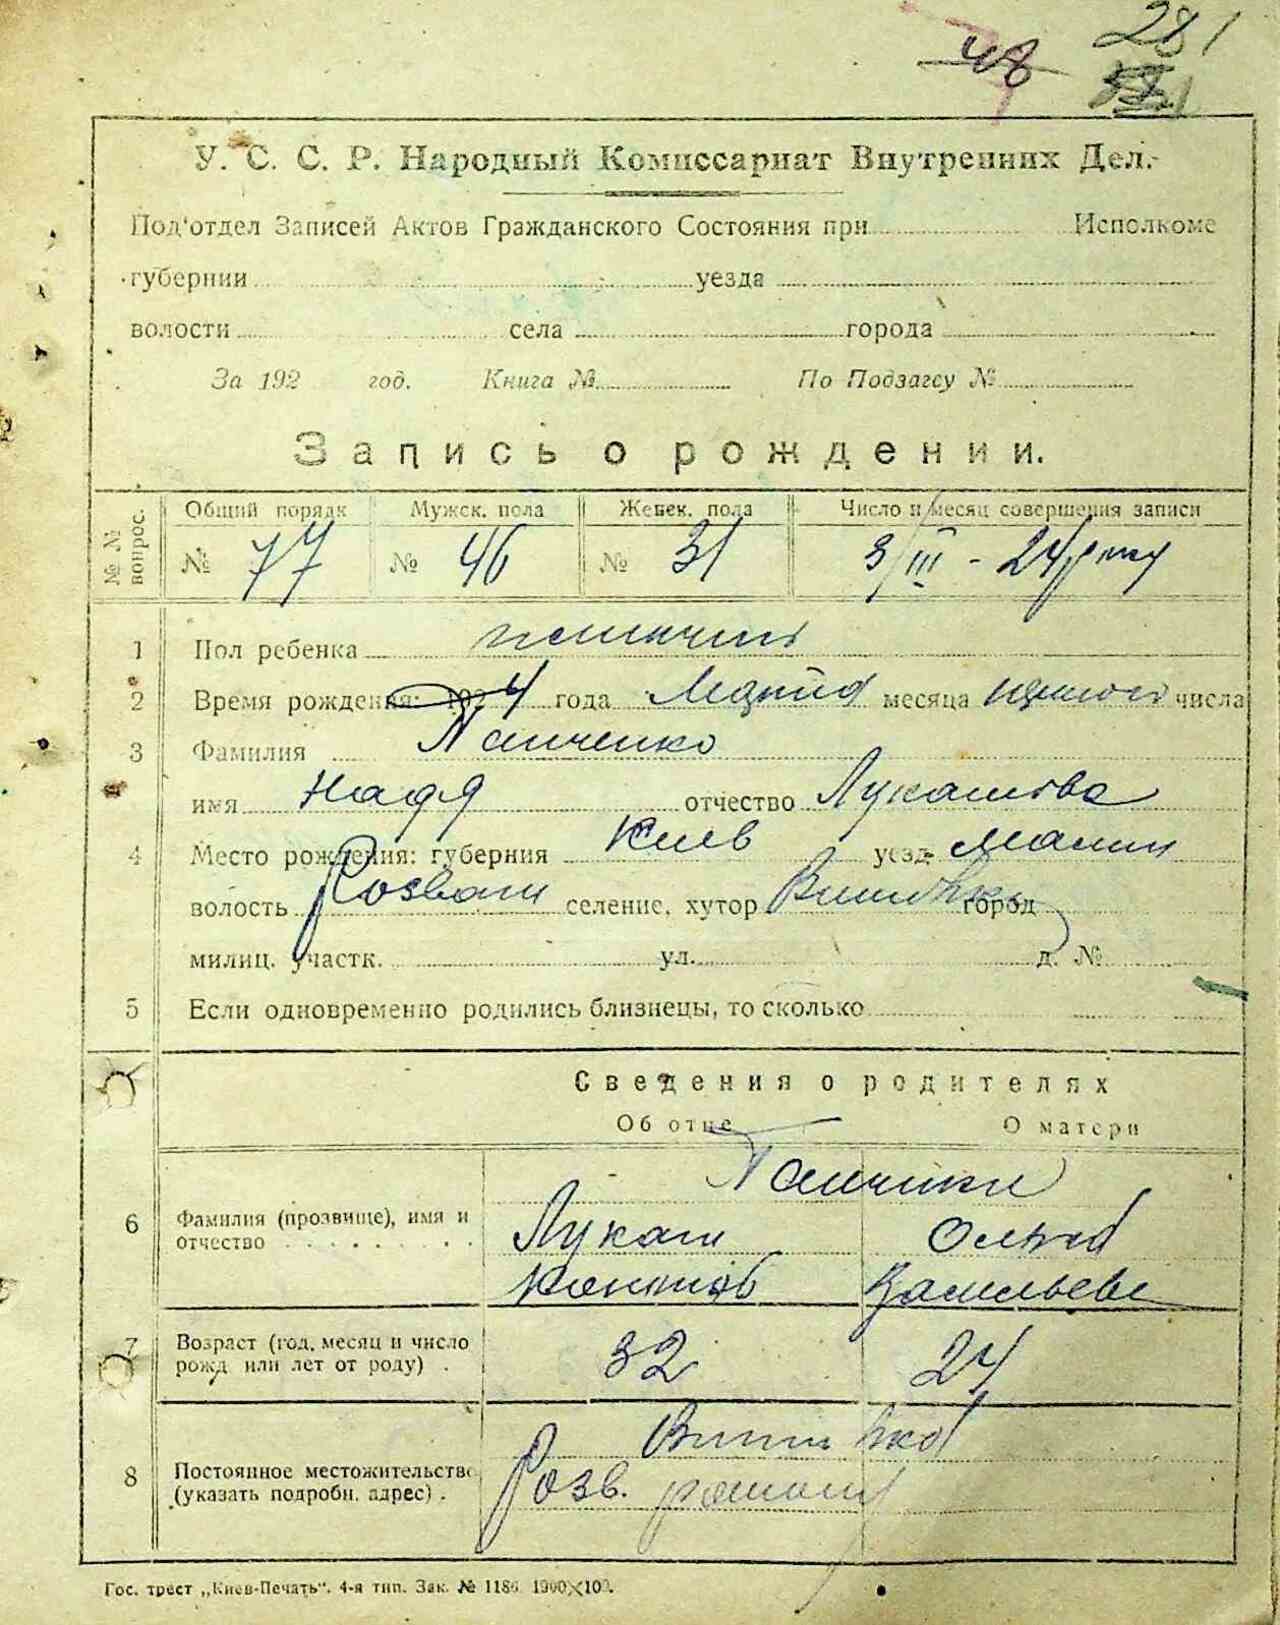 48 281
У. С. С. Р. Народный Комиссариат Внутренних Дел.
Под'отдел Записей Актов Гражданского Состояния при Исполкоме
губернии уезда
волости села города
За 192 год. Книга № По Подзагсу №
Запись о рождении.
№ № вопрос. Общий порядк Мужск. пола Женск. пола Число и месяц совершения записи
№ 77 № 46 № 31 3/III - 24
1 Пол ребенка
2 Время рождения: 1924 года месяца числа
3 Фамилия Панченко
имя Надя отчество Лукашова
4 Место рождения: губерния Киев уезд Малин
волость Розваж селение, хутор город
милиц. участк. ул. д. №
5 Если одновременно родились близнецы, то сколько
Сведения о родителях
Об отце О матери
Панченки
6 Фамилия (прозвище), имя и Лукаш
отчество Васильева
7 Возраст (год, месяц и число 32 24
рожд или лет от роду) .
8 Постоянное местожительство Розв.
(указать подробн. адрес) .
Гос. трест „Киев-Печать“. 4-я тип. Зак. № 1186